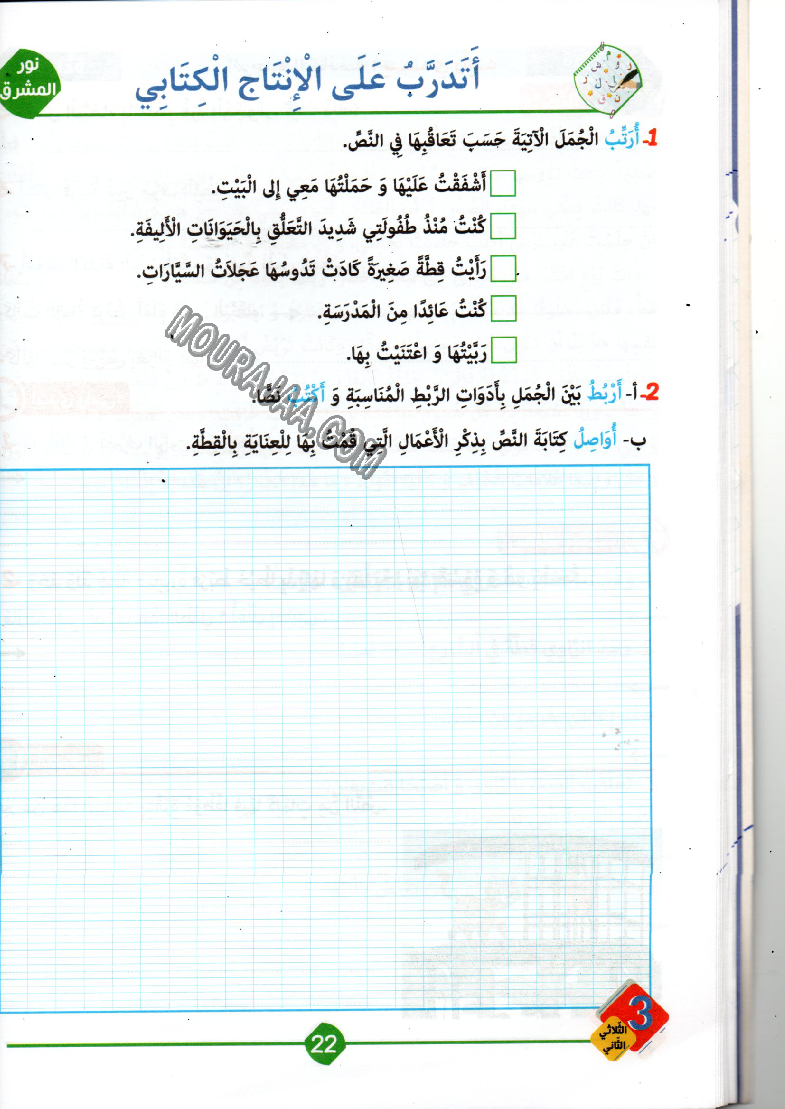 نور
المشرق
أَتَدَرَّبُ عَلَى الْإِنْتَاجِ الْكِتَابِي
1- أُرَتِّبُ الْجُمَلَ الْآتِيَةَ حَسَبَ تَعَاقُبِهَا فِي النَّصِّ.
أَشْفَقْتُ عَلَيْهَا وَ حَمَلْتُهَا مَعِي إِلى الْبَيْتِ.
كُنْتُ مُنْذُ طُفُولَتِي شَدِيدَ التَّعَلُّقِ بِالْحَيَوَانَاتِ الْأَلِيفَةِ.
رَأَيْتُ قِطَّةً صَغِيرَةً كَادَتْ تَدُوسُهَا عَجَلاَتُ السَّيَّارَاتِ.
كُنْتُ عَائِدًا مِنَ الْمَدْرَسَةِ.
رَبَّيْتُهَا وَ اعْتَنَيْتُ بِهَا.
2- أ- أَرْبُطُ بَيْنَ الْجُمَلِ بِأَدَوَاتِ الرَّبْطِ الْمُنَاسِبَةِ وَ أَكْتُبُ نَصًّا.
ب- أُوَاصِلُ كِتَابَةَ النَّصِّ بِذِكْرِ الْأَعْمَالِ الَّتِي قُمْتُ بِهَا لِلْعِنَايَةِ بِالْقِطَّةِ.
MOURAJAA.COM
3
الثّلاثي
الثّاني
22